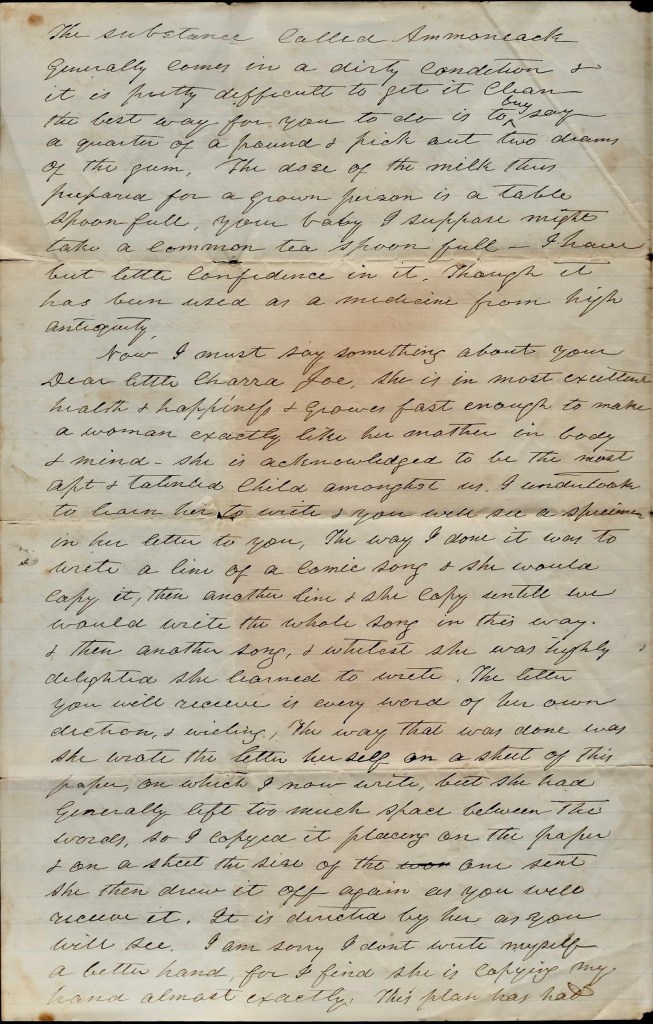 The substance Called Ammoneack
Generally comes in a dirty Condition &
it is pretty difficult to get it Clean
the best way for you to do is to buy say
a quarter of a pound & pick out two drams
of the gum, The dose of the milk thus
prepared for a grown person is a table
spoon full, your baby I suppose might
take a Common tea spoon full – I have
but little Confidence in it, Though it
has been used as a medicine from high
antiquity,
Now I must say something about your
Dear little Charra Joe, she is in most excellent
health & happiness & Growes fast enough to make
a woman exactly like her mother in body
& mind – she is acknowledged to be the most
apt & talented Child amonghst us. I undertook
to learn her to write & you will see a specimen
in her letter to you, The way I done it was to
write a line of a Comic song & she would
Copy it, then another line & she Copy untill we
would write the whole song in this way.
& then another song, & whilest she was highly
delighted she learned to write. The letter
you will recieve is every word of her own
diction, & writing, The way that was done was
she wrote the letter her self on a sheet of this
paper, on which I now write, but she had
Generally left too much space between the
words, so I Copyed it placing on the paper
& on a sheet the size of the one sent
she then drew it off again as you will
recieve it. It is directed by her as you
will see. I am sorry I dont write myself
a better hand, for I find she is Copying my
hand almost exactly. This plan has had